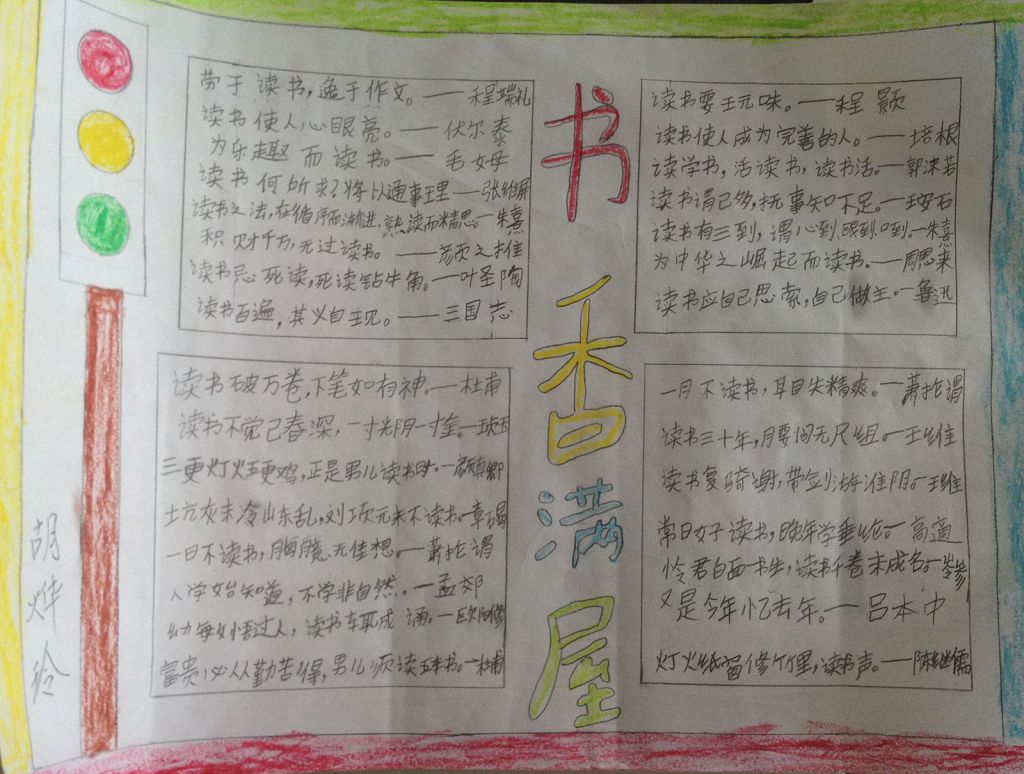 劳于读书,逸于作文。——程端礼
读书使人心眼亮。——伏尔泰
为乐趣而读书。——毛姆
读书何所求?将以通事理——张维屏
读书之法,在循序而渐进,熟读而精思。—朱熹
积财千万,无过读书。——颜之推
读书忌死读,死读钻牛角。—叶圣陶
读书百遍,其义自王见。——三国志
书香满屋
读书要玩味。——程颢
读书使人成为完善的人。——培根
读学书,活读书,读书活。—郭沫若
读书谓已多,抚事知不足。—王安石
读书有三到,谓心到眼到口到。—朱熹
为中华之崛起而读书。—周恩来
读书应自己思索,自己做主。—鲁迅
读书破万卷,下笔如有神。—杜甫
读书不觉已春深,一寸光阴一寸金。—王贞白
三更灯火五更鸡,正是男儿读书时。—颜真卿
土坑灰未冷山东乱,刘项元来不读书。—章碣
一日不读书,胸臆无佳想。—萧抡谓
人学始知道,不学非自然。—孟郊
幼每女悟过人,读书车取成诵。—欧阳修
富贵必从勤苦得,男儿须读五车书。—杜甫
一月不读书,耳目失精爽。—萧抡谓
读书三十年,腰间无尺组。—王维
读书复骑射,带剑游淮阴。—王维
常日好读书,晚年学垂纶。—高適
怜君白面一书生,读书千卷未成名。—岑参
又是今年忆去年。——吕本中
灯火纸窗修竹里,读书声。—陈继儒
胡烨玲